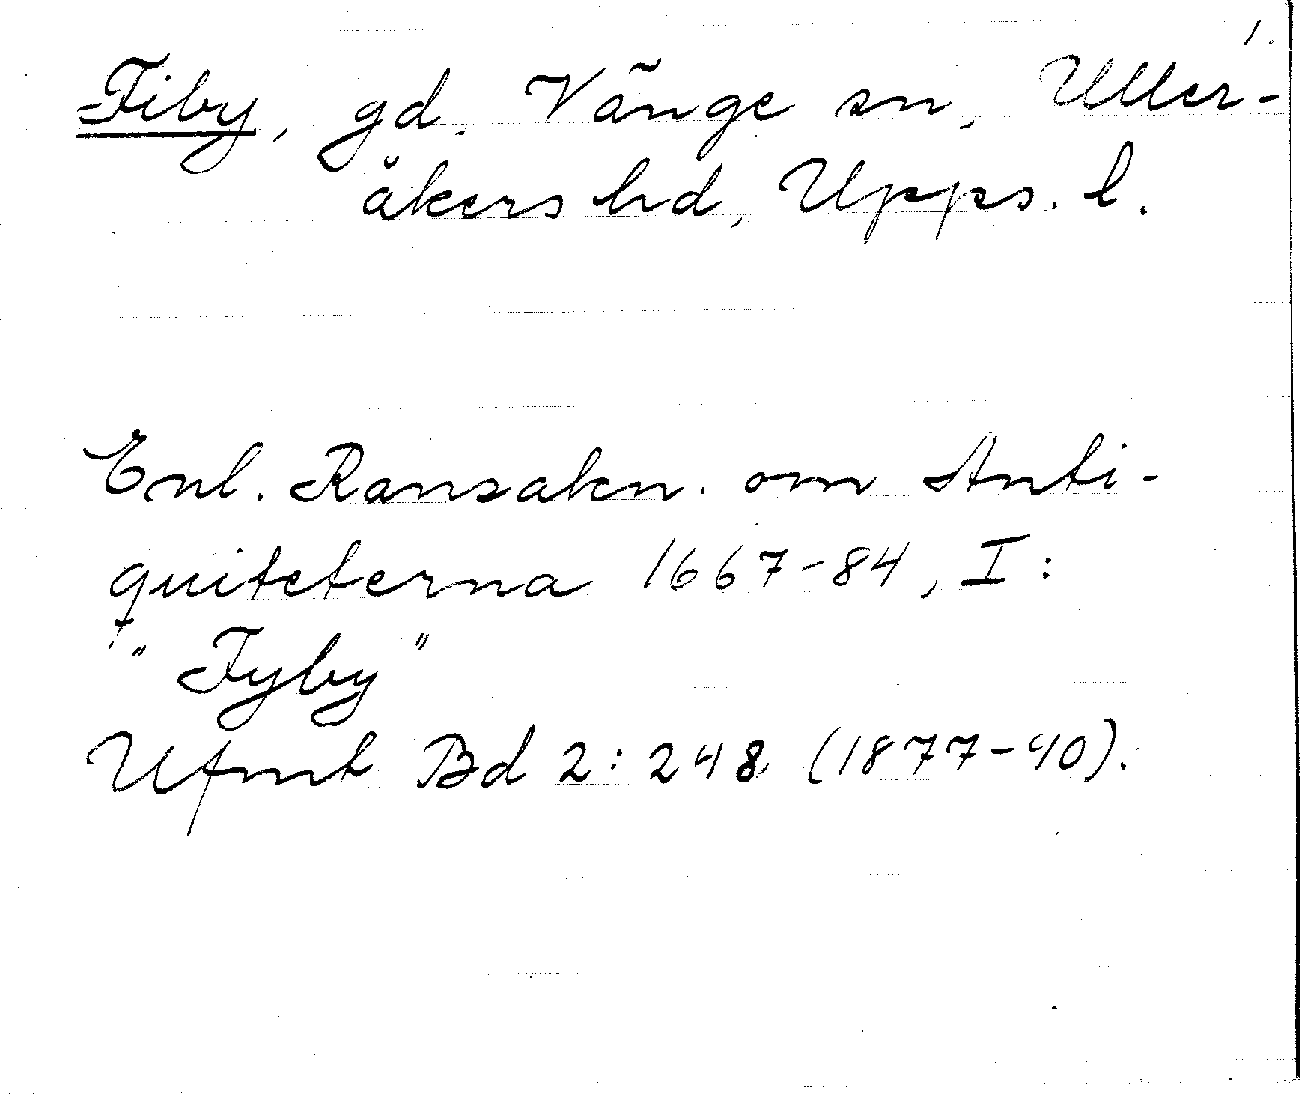 1.
Fiby, gd, Vänge sn, Uller-
åkers hd, Upps. l.
Enl. Ransakn. om Anti-
quiteterna 1667-84, I:
"Fyby"
Ufmt Bd 2:248 (1877-90).